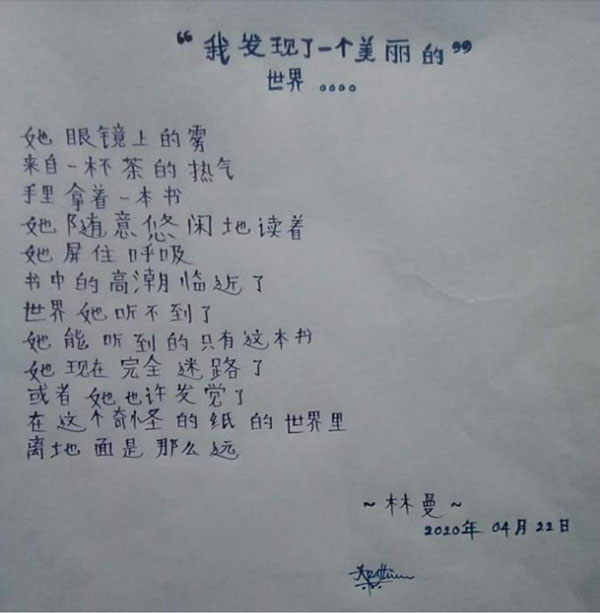 “我发现了一个美丽的”
世界 。。。。
她眼镜上的雾
来自一杯茶的热气
手里拿着一本书
她随意悠闲地读着
她屏住呼吸
书中的高潮临近了
世界她听不到了
她能听到的只有这本书
她现在完全迷路了
或者她也许发觉了
在这个奇怪的纸的世界里
离地面是那么远
~林曼~
2020年 04月22日